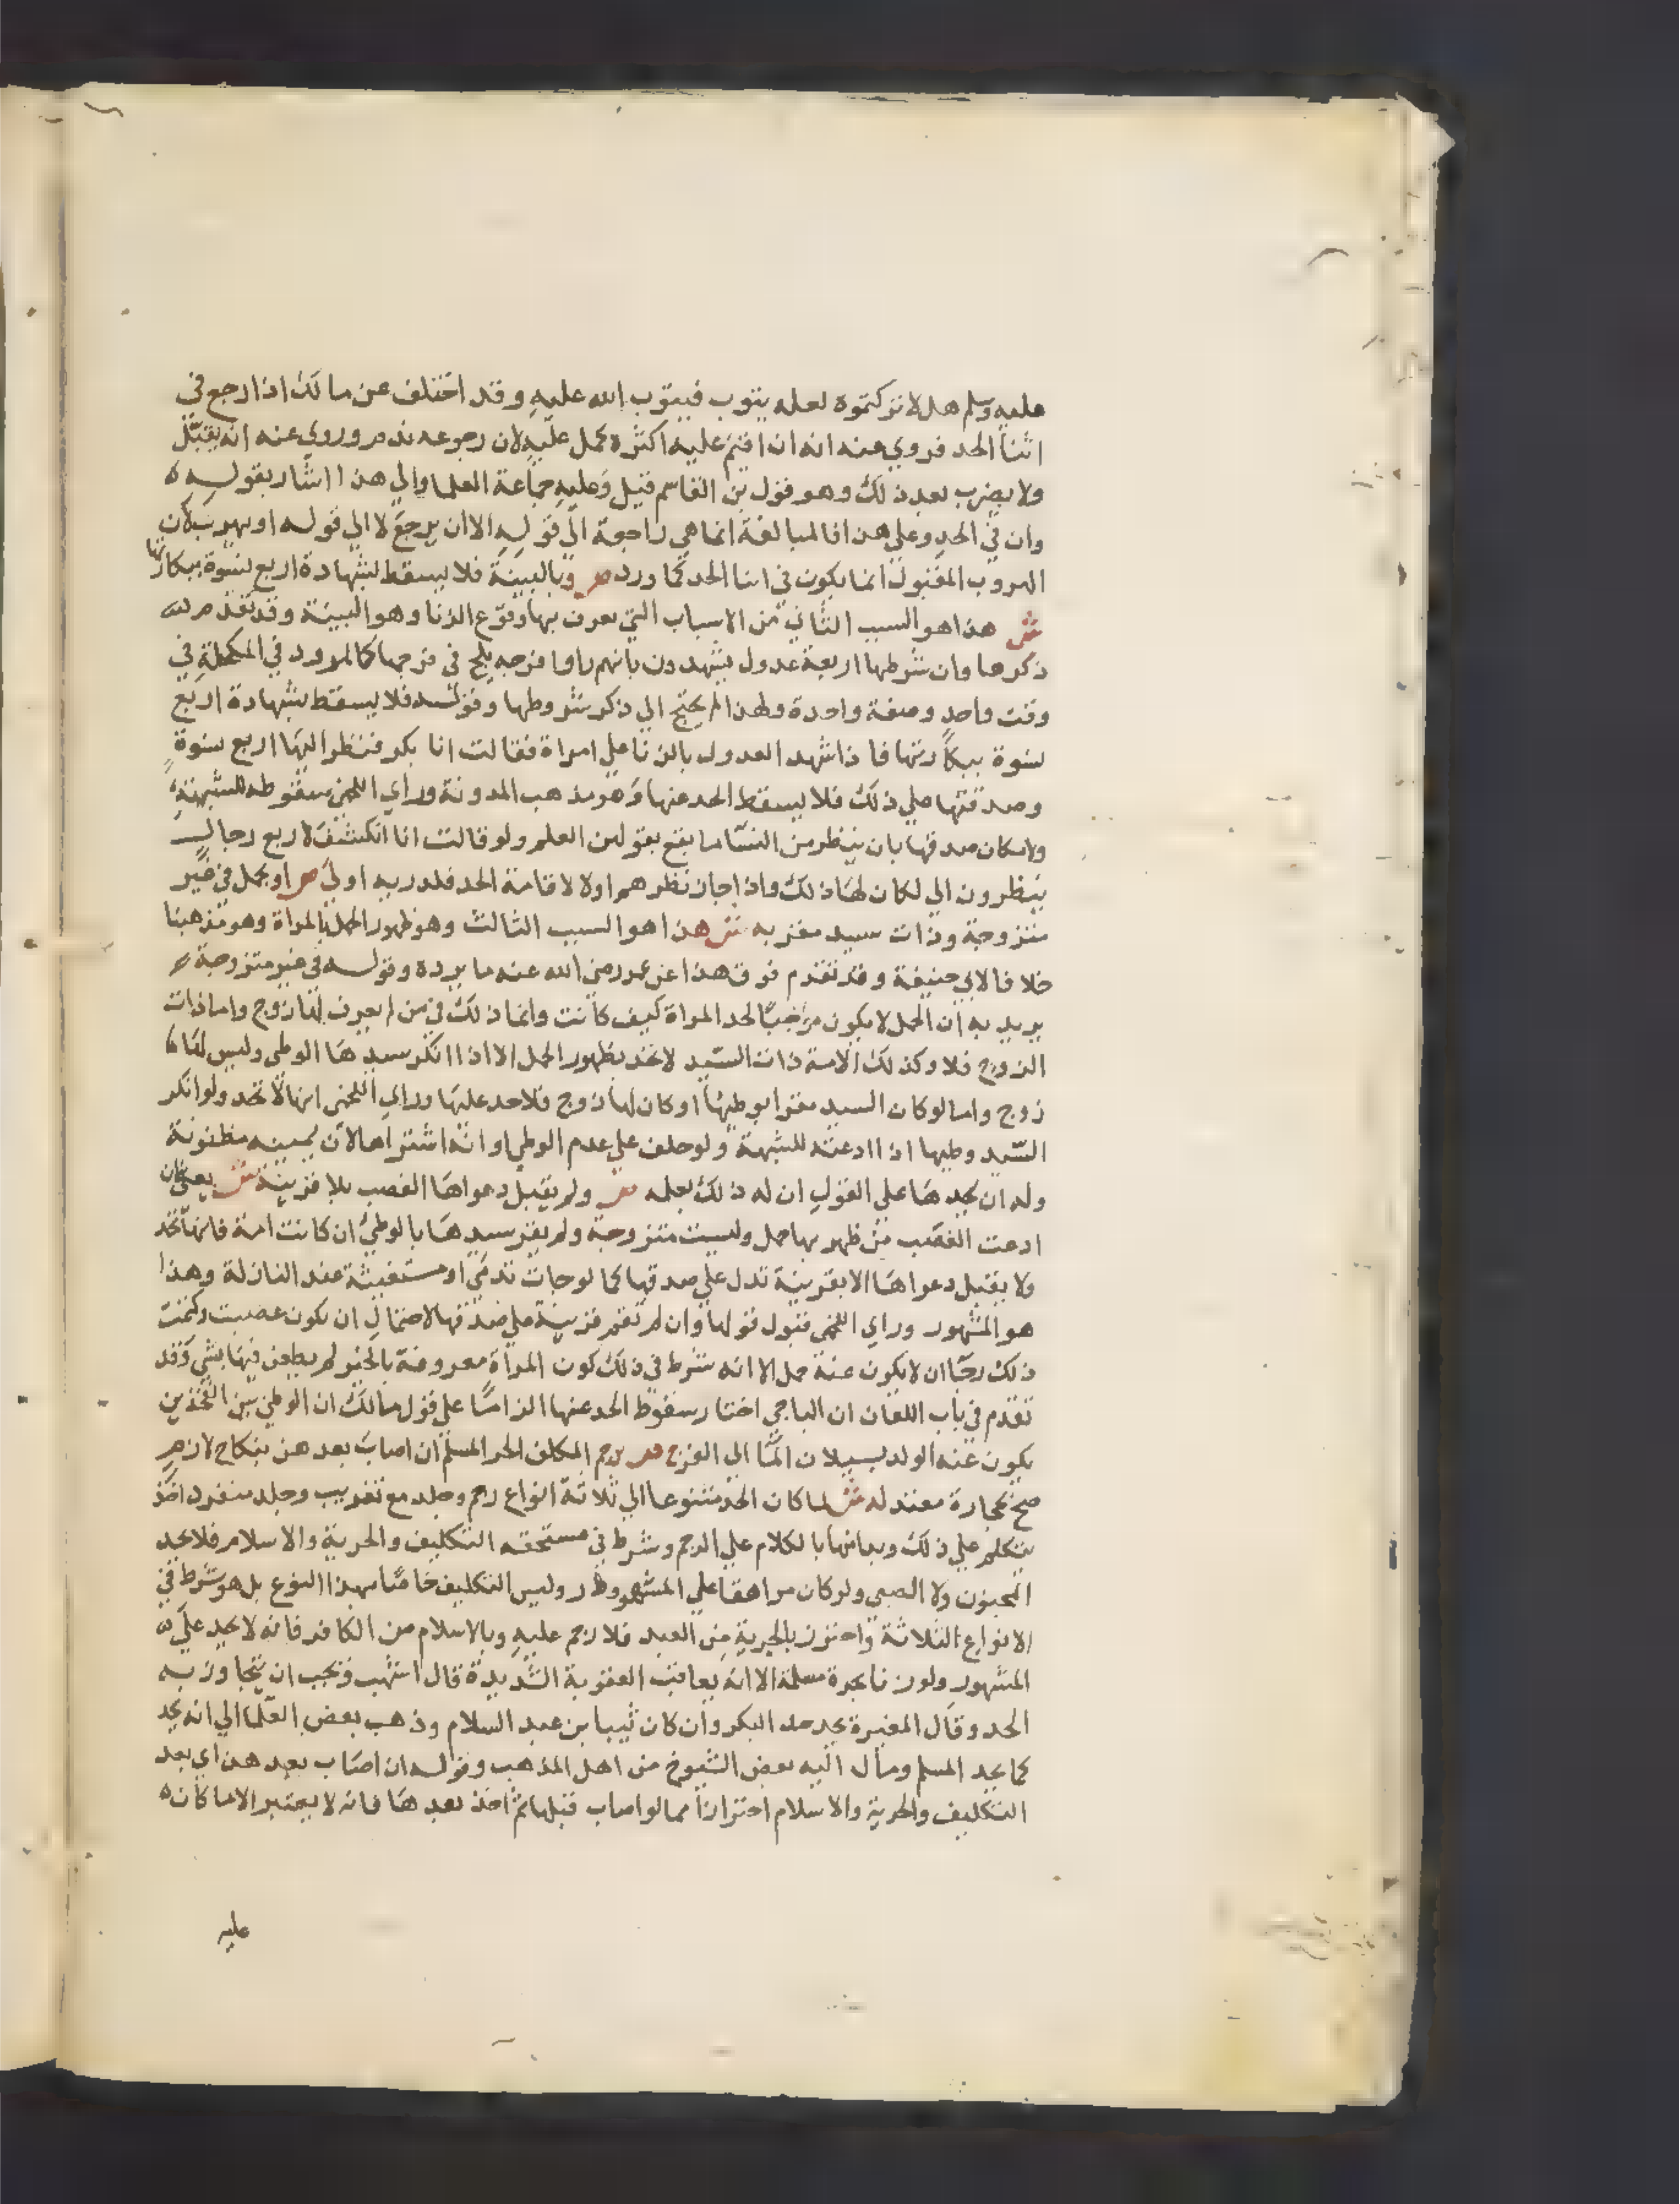 عليه وسلم هلا تركتموه لعله يتوب فيتوب الله عليه وقد اختلف عن مالك اذا رجع في
اثنا الحد فروي عنه انه ان اقيم عليه اكثره كمل عليه لان رجوعه ندم وروي عنه انه يقبل
ولا يضرب بعد ذلك وهو قول بن القاسم قيل وعليه جماعة العلما والي هذا اشار بقوله
وان في الحد وعلي هذا فالمبالغة انما هي راجعة الي قوله الا ان يرجع لا الي قوله او يهرب لان
الهروب المقبول انما يكون في اثنا الحد كما ورد ص وبالبينة فلا يسقط بشهادة اربع نسوة ببكارتها
ش هذا هو السبب الثاني من الاسباب التي يعرف بها وقوع الزنا وهو البينة وقد تقدم له
ذكرها وان شرطها اربعة عدول يشهدون بانهم راوا فرجه يلج في فرجها كالمرود في المكحلة في
وقت واحد وصفة واحدة ولهذا لم يحتج الي ذكر شروطها وقوله فلا يسقط بشهادة اربع
نسوة ببكارتها فاذا شهد العدول بالزنا علي امراة فقالت انا بكر فنظر اليها اربع نسوة
وصدقتها علي ذلك فلا يسقط الحد عنها وهو مذهب المدونة وراي اللخمي سقوطه للشبهة
ولامكان صدقها بان ينظر من النسا ما يقع بقولهن العلم ولو قالت انا انكشف لاربع رجال
ينظرون الي لكان لها ذلك واذا جاز نظرهم اولا لاقامة الحد فلدريه اولي ص او بحمل في غير
متزوجة وذات سيد مقر به ش هذا هو السبب الثالث وهو ظهور الحمل بالمراة وهو مذهبنا
خلافا لابي حنيفة وقد تقدم فوق هذا عن عمر رضي الله عنه ما يرده وقوله في غير متزوجة
يريد به ان الحمل لا يكون موجبا لحد المراة كيف كانت وانما ذلك في من لم يعرف لها زوج واما ذات
الزوج فلا وكذلك الامة ذات السيد لا تحد بظهور الحمل الا اذا انكر سيدها الوطي وليس لها
زوج واما لو كان السيد مقرا بوطيها او كان لها زوج فلا حد عليها وراي اللخمي انها لا تحد ولو انكر
السيد وطيها اذا ادعته للشبهة ولو حلف علي عدم الوطي او انه اشتراها لان يمينه مظنونة
وله ان يحدها علي القول ان له ذلك بعلمه ص ولم يقبل دعواها الغصب بلا قرينة ش يعني فان
ادعت الغصب من ظهر بها حمل وليست متزوجة ولم يقر سيدها بالوطي ان كانت امة فانها تحد
ولا يقبل دعواها الا بقرينة تدل علي صدقها كما لو جات تدمي او مستغيثة عند النازلة وهذا
هو المشهور وراي اللخمي قبول قولها وان لم تقم قرينة علي صدقها لاحتمال ان يكون غصبت وكتمت
ذلك رجا ان لا يكون عنه حمل الا انه شرط في ذلك كون المراة معروفة بالخير لم يطعن فيها بشي وقد
تقدم في باب اللعان ان الباجي اختار سقوط الحد عنها الزاما علي قول مالك ان الوطي بين الفخذين
يكون عنه الولد بسيلان الما الي الفرج ص يرجم المكلف الحر المسلم ان اصاب بعدهن بنكاح لازم
صح بحجارة معتدله ش لما كان الحد متنوعا الي ثلاثة انواع رجم وجلد مع تغريب وجلد منفرد اخذ
يتكلم علي ذلك وبدا منها بالكلام علي الرجم وشرط في مستحقه التكليف والحرية والاسلام فلا يحد
المجنون ولا الصبي ولو كان مراهقا علي المشهور وليس التكليف خاصا بهذا النوع بل هو شرط في
الانواع الثلاثة واحترز بالحرية من العبد فلا رجم عليه وبالاسلام من الكافر فانه لا يحد علي
المشهور ولو زنا بحرة مسلمة الا انه يعاقب العقوبة الشديدة قال اشهب ويجب ان يتجاوز به
الحد وقال المغيرة يحد حد البكر وان كان ثيبا بن عبد السلام وذهب بعض العلما الي انه يحد
كما يحد المسلم ومال اليه بعض الشيوخ من اهل المذهب وقوله ان اصاب بعدهن اي بعد
التكليف والحرية والاسلام احترازا مما لو اصاب قبلها ثم اخذ بعدها فانه لا يعتبر الا ما كان
عليه